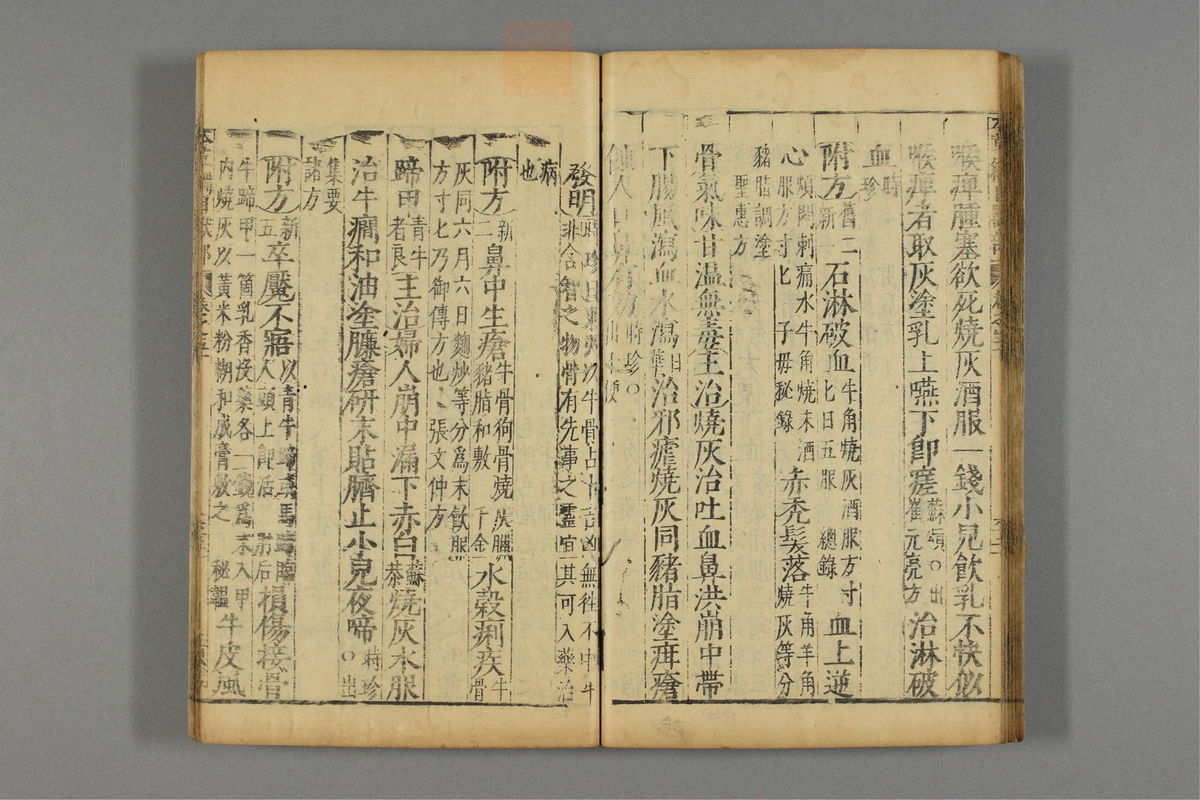 喉痺腫塞欲死燒灰酒服一錢小兒飲乳不快似
喉痺者取灰塗乳上嚥下卽瘥蘇頌○出崔元亮方治淋破
血時珍
附方舊一新二石淋破血牛角燒灰酒服方寸匕日五服總錄血上逆
心煩悶刺痛水牛角燒末酒服方寸匕子母秘錄赤禿髮落牛角羊角燒灰等分
豬脂調塗聖惠方
骨氣味甘温無毒主治燒灰治吐血鼻洪崩中帶
下腸風瀉血水瀉日華治邪瘧燒灰同豬脂塗疳瘡
蝕人口鼻有効時珍○出十便
發明時珍曰東夷以牛骨占卜吉凶無往不中牛非含智之物骨有先事之靈宜其可入藥治
病也
附方新二鼻中生瘡牛骨狗骨燒灰臘豬脂和敷千金水穀痢疾牛骨
灰同六月六日麴炒等分爲末飲服方寸匕乃御傳方也張文仲方
蹄甲青牛者良主治婦人崩中漏下赤白蘇恭燒灰水服
治牛癇和油塗臁瘡硏末貼臍止小兒夜啼時珍○出
集要諸方
附方新五卒魘不寤以青牛蹄或馬蹄臨人頭上卽活肘后損傷接骨
牛蹄甲一箇乳香没藥各一錢爲末入甲内燒灰以黃米粉糊和成膏敷之秘韞牛皮風